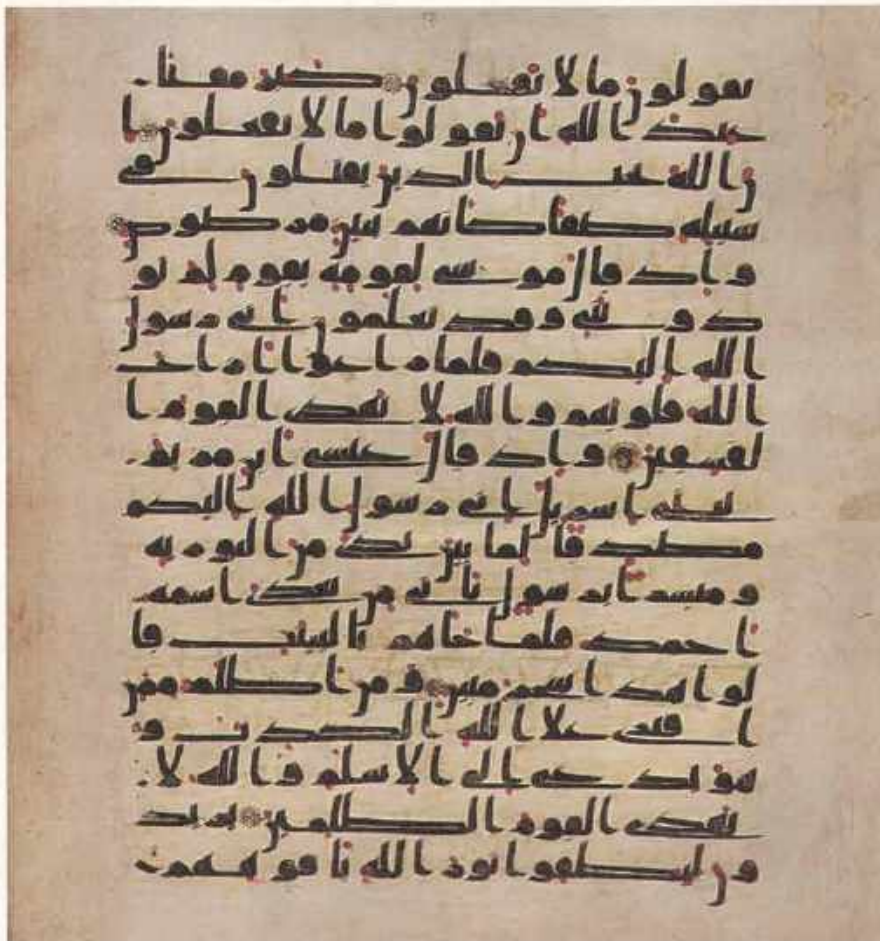 تقولون ما لا تفعلون كبر مقتا
عند الله ان تقولوا ما لا تفعلون ا
ن الله يحب الذين يقتلون في
سبيله صفا كانهم بنين مرصوص
و اذ قال موسى لقومه يقوم لم تو
ذونني وقد تعلمون اني رسول
الله اليكم فلما زاغوا ازاغ
الله قلوبهم والله لا يهدي القوم ا
لفسقين واذ قال عيسى ابن مريم
يبني اسريل اني رسول الله اليكم
مصدقا لما بين يدي من التورية
ومبشرا برسول ياتي من بعدي اسمه
احمد فلما جاهم بالبينت قا
لوا هذا سحر مبين ومن اظلم ممن
افترى على الله الكذب و
هو يدعى الى الاسلم والله لا
يهدي القوم الظلمين يريد
ون ليطفوا نور الله بافوههم